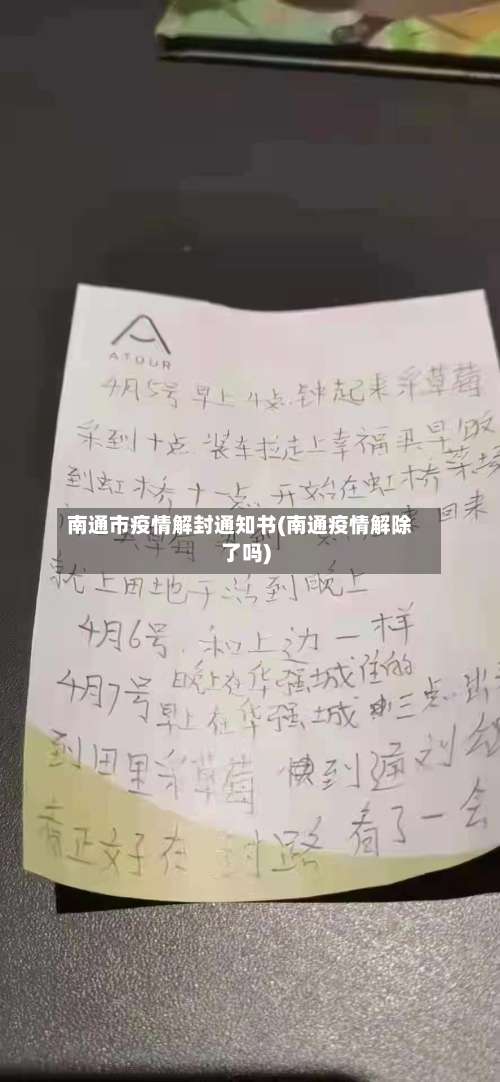 ATOUR
4月5号早上4点钟起来采草莓
采到十点.装车拉走上幸福买早饭
到虹桥十一点.开始在虹桥菜场
南通市疫情解封通知书(南通疫情解除
了吗)
就上田地干活到晚上
4月6号.和上边一样
晚上在华强城住的
4月7号早上在华强城三点.出
到田里采草莓 到通刘
看正好在封路 看了一会